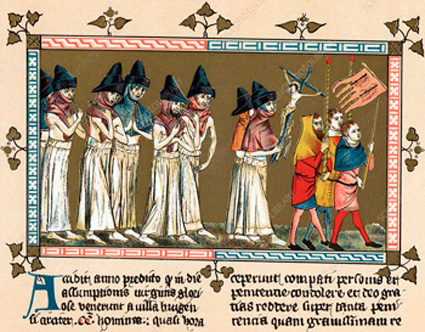 Accidit anno predicto q̄ in die
assumptionis uirginis glori
ose uenerunt a uilla brugen
si circiter .CC. homines: quasi hora
ceperunt compati personis et
penitentie condolere et deo gra
tias reddere super tanta peni
tencia quam grauissimam re